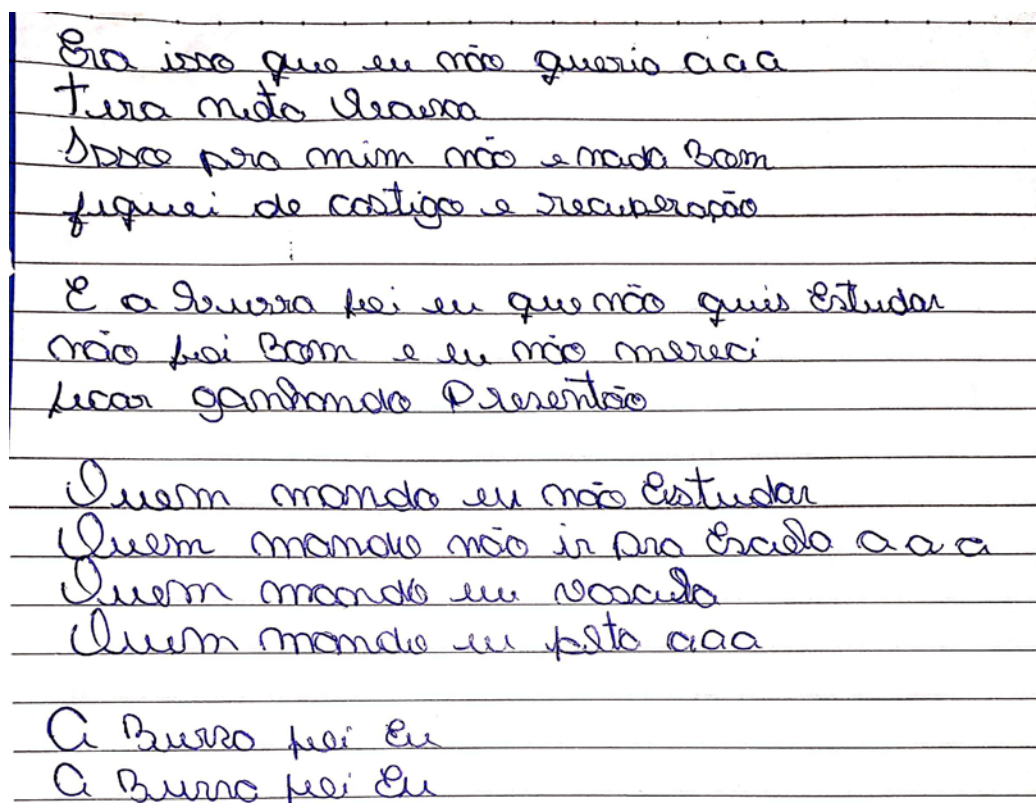 Era isso que eu não queria aaa
Tira nota Baixa
Isso pra mim não e nada Bom
fiquei de castigo e recuperação
E a Burra foi eu que não quis Estudar
não foi Bom e eu não mereci
ficar ganhando Presentão
Quem mando eu não Estudar
Quem mando não ir pra Escola a a a
Quem mando eu vacila
Quem mando eu falta aaa
A Burra foi Eu
A Burra foi Eu